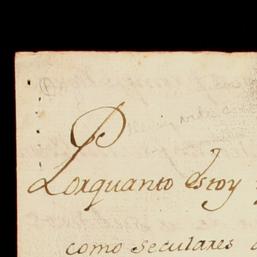 Porquanto Estoy
como seculares